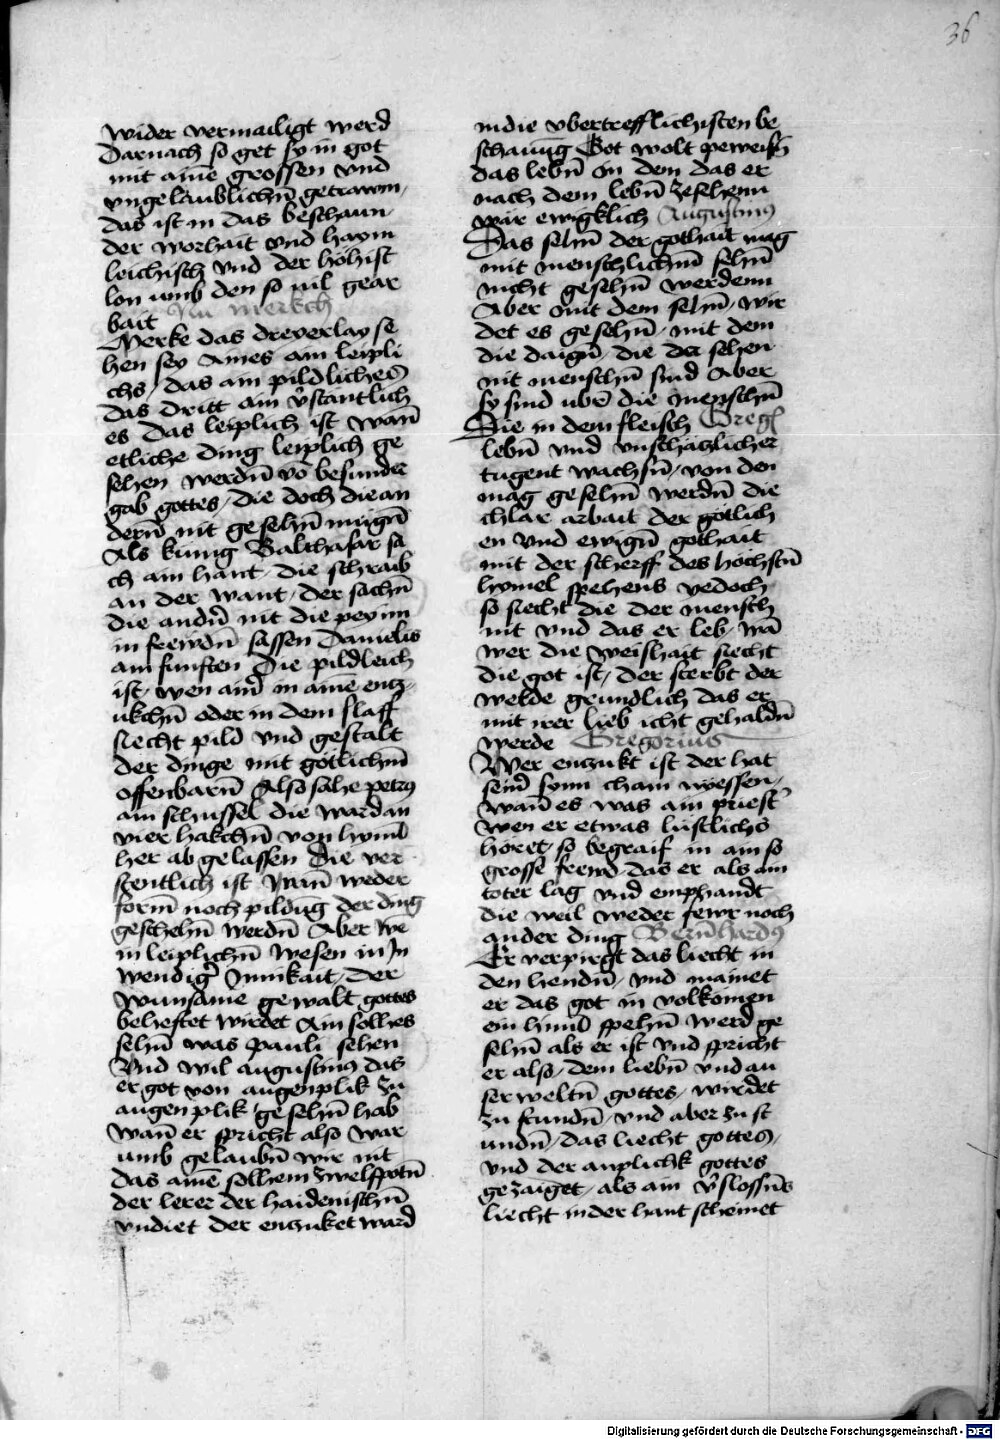 36
wider vermailigt werd
Darnach so get sy in got
mit aine͂ grossen vnd
vngelaublichn̄ getrawn,
das ist in das beschaun
der worhait vnd haym
leichisch vnd der höhist
lon umb den so uil gear
bait Nu merkch
Merke das dreyerlay se
hen sey Aines ain leipli
chs, das ain pildliches
das dritt ain v̄stantlich
es das leiplich ist wan̄
etliche ding leiplich ge
sehen werdn̄ vo͂ besunder
gab gottes, die doch die an
dern̄ nit gesehn̄ mügn̄
Als künig Balthasar sa
ch ain hant, die schraib
an der want, der sachn̄
die andn̄ nit die pey im
in frewdn̄ sassen Danielis
am funften Die pildleich
ist, wen ain̄ in aine͂ entz,
ukchn̄ oder in dem slaff
siecht pild vnd gestalt
der dinge mit götlichm̄
offenbarn̄ Also sahe petrus
ain schussel die ward an
vier hakchn̄ von hyml
her ab gelassen Die ver
stentlich ist Wan̄ weder
form̄ noch pildūg der ding
geschehn̄ werdn̄ Aber we͂
in leiplichn̄ wesen in In
wendigr̄ Innikait, der
wunsame gewalt gottes
beheftet wirdet Ain solhes
sehn̄ was pauli sehen
Vnd wil augustinus das
er got von augenplik zu
augenplik gesehn̄ hab
wan̄ er spricht also War
umb gelaubn̄ wir nit
das aine͂ solhem zwelfpotn̄
der lerer der haidenischn̄
vndiet der entzuket ward
in die vbertrefflichisten be
schaung Got wolt peweisn̄
das lebn̄ in dem das er
nach dem lebn̄ zesehenn
wär ewigklich Augustinus
Das sehn̄ der gothait mag
mit menschlichm̄ sehn̄
nicht gesehn̄ werdenn
Aber mit dem sehn̄, wir
det es gesehn̄, mit dem
die daign̄, die da sehen
nit menschn̄ sind Aber
sy sind ubr̄ die menschn̄
Die in dem fleisch Gregl
lebn̄ vnd vnschätzlicher
tugent wachsn̄, von den
mag gesehn̄ werdn̄ die
chlar arbait der götlich
en vnd ewign̄ gothait
mit der scherff des höchstn̄
hymel spehens yedoch
so siecht die der mensch
nit vnd das er leb, wā
wer die weishait siecht
die got ist, der sterbt der
welde grundlich das er
mit irer lieb icht gehaldn̄
werde Gregorius
Wer entzukt ist der hat
sein̄ synn chain wyessen,
wan̄ es was ain priest̄
wen er etwas lüstlichs
höret, so begraif in ain so
grosse frewd, das er als ain
toter lag vnd emphandt
die weil weder fewr noch
ander ding Bern̄hardus
Er verpirgt das liecht in
den hendn̄, vnd mainet
er das got in volkomen
ein himl spehn̄ werd ge
sehn̄ als er ist vnd spricht
er also, dem liebn̄ vnd au
ser weltn̄ gottes, wirdet
zu stundn̄, vnd aber zu st
undn̄, das liecht gottes,
vnd der anplichk gottes
gezaiget, als ain v̄slossn̄s
liecht in der hant scheinet
Digitalisierung gefördert durch die Deutsche Forschungsgemeinschaft - DFG